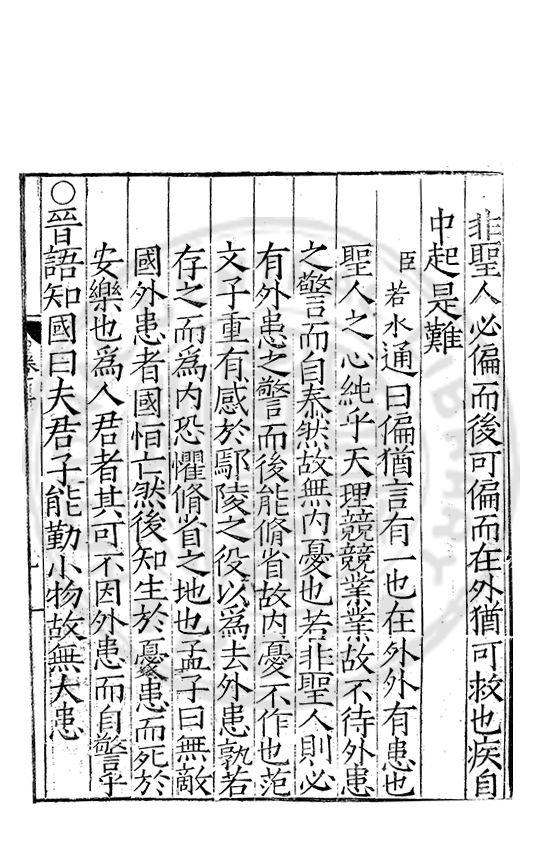 非聖人必偏而後可偏而在外猶可救也疾自
中起是難
臣若水通曰偏猶言有一也在外外有患也
聖人之心純乎天理競競業業故不待外患
之警而自泰然故無内憂也若非聖人則必
有外患之警而後能脩省故内憂不作也范
文子重有感於鄢陵之役以為去外患孰若
存之而為内恐懼脩省之地也孟子曰無敵
國外患者國恒亡然後知生於憂患而死於
安樂也為人君者其可不因外患而自警乎
○晉語知國曰夫君子能勤小物故無大患